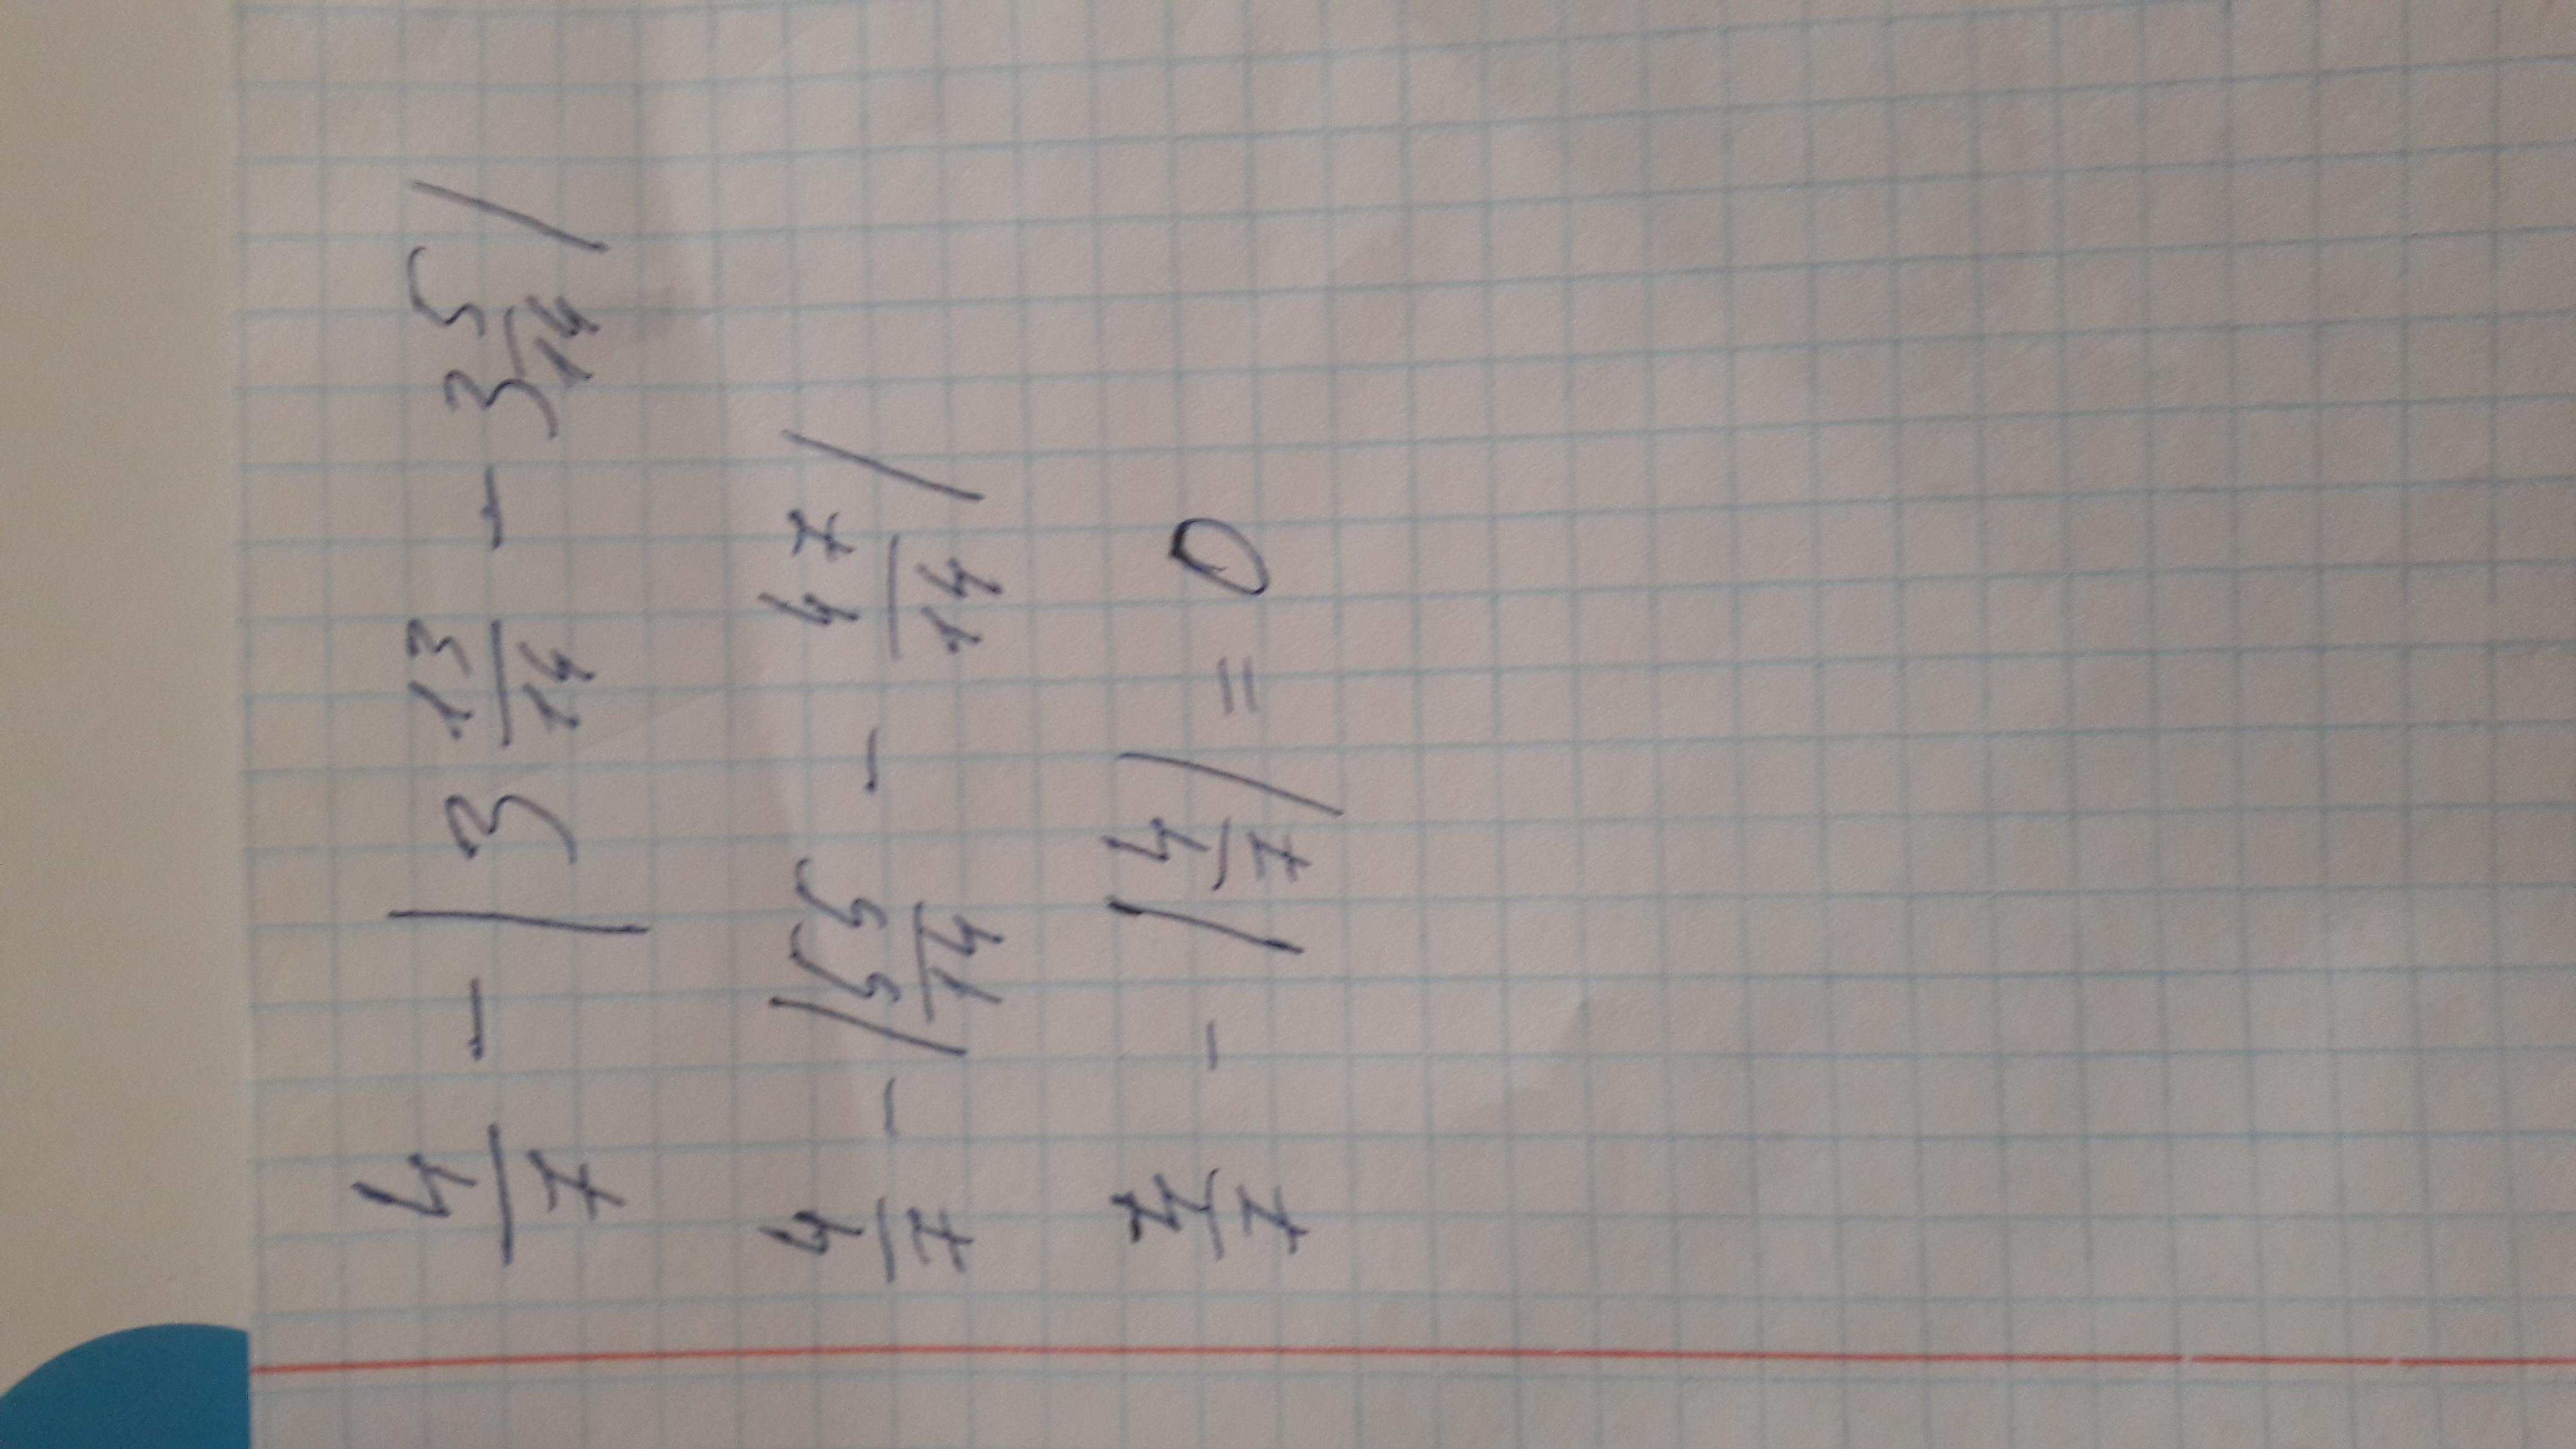 4/7 - (3 13/14 - 3 5/14)
4/7 - (55/14 - 47/14)
4/7 - (4/7) = 0